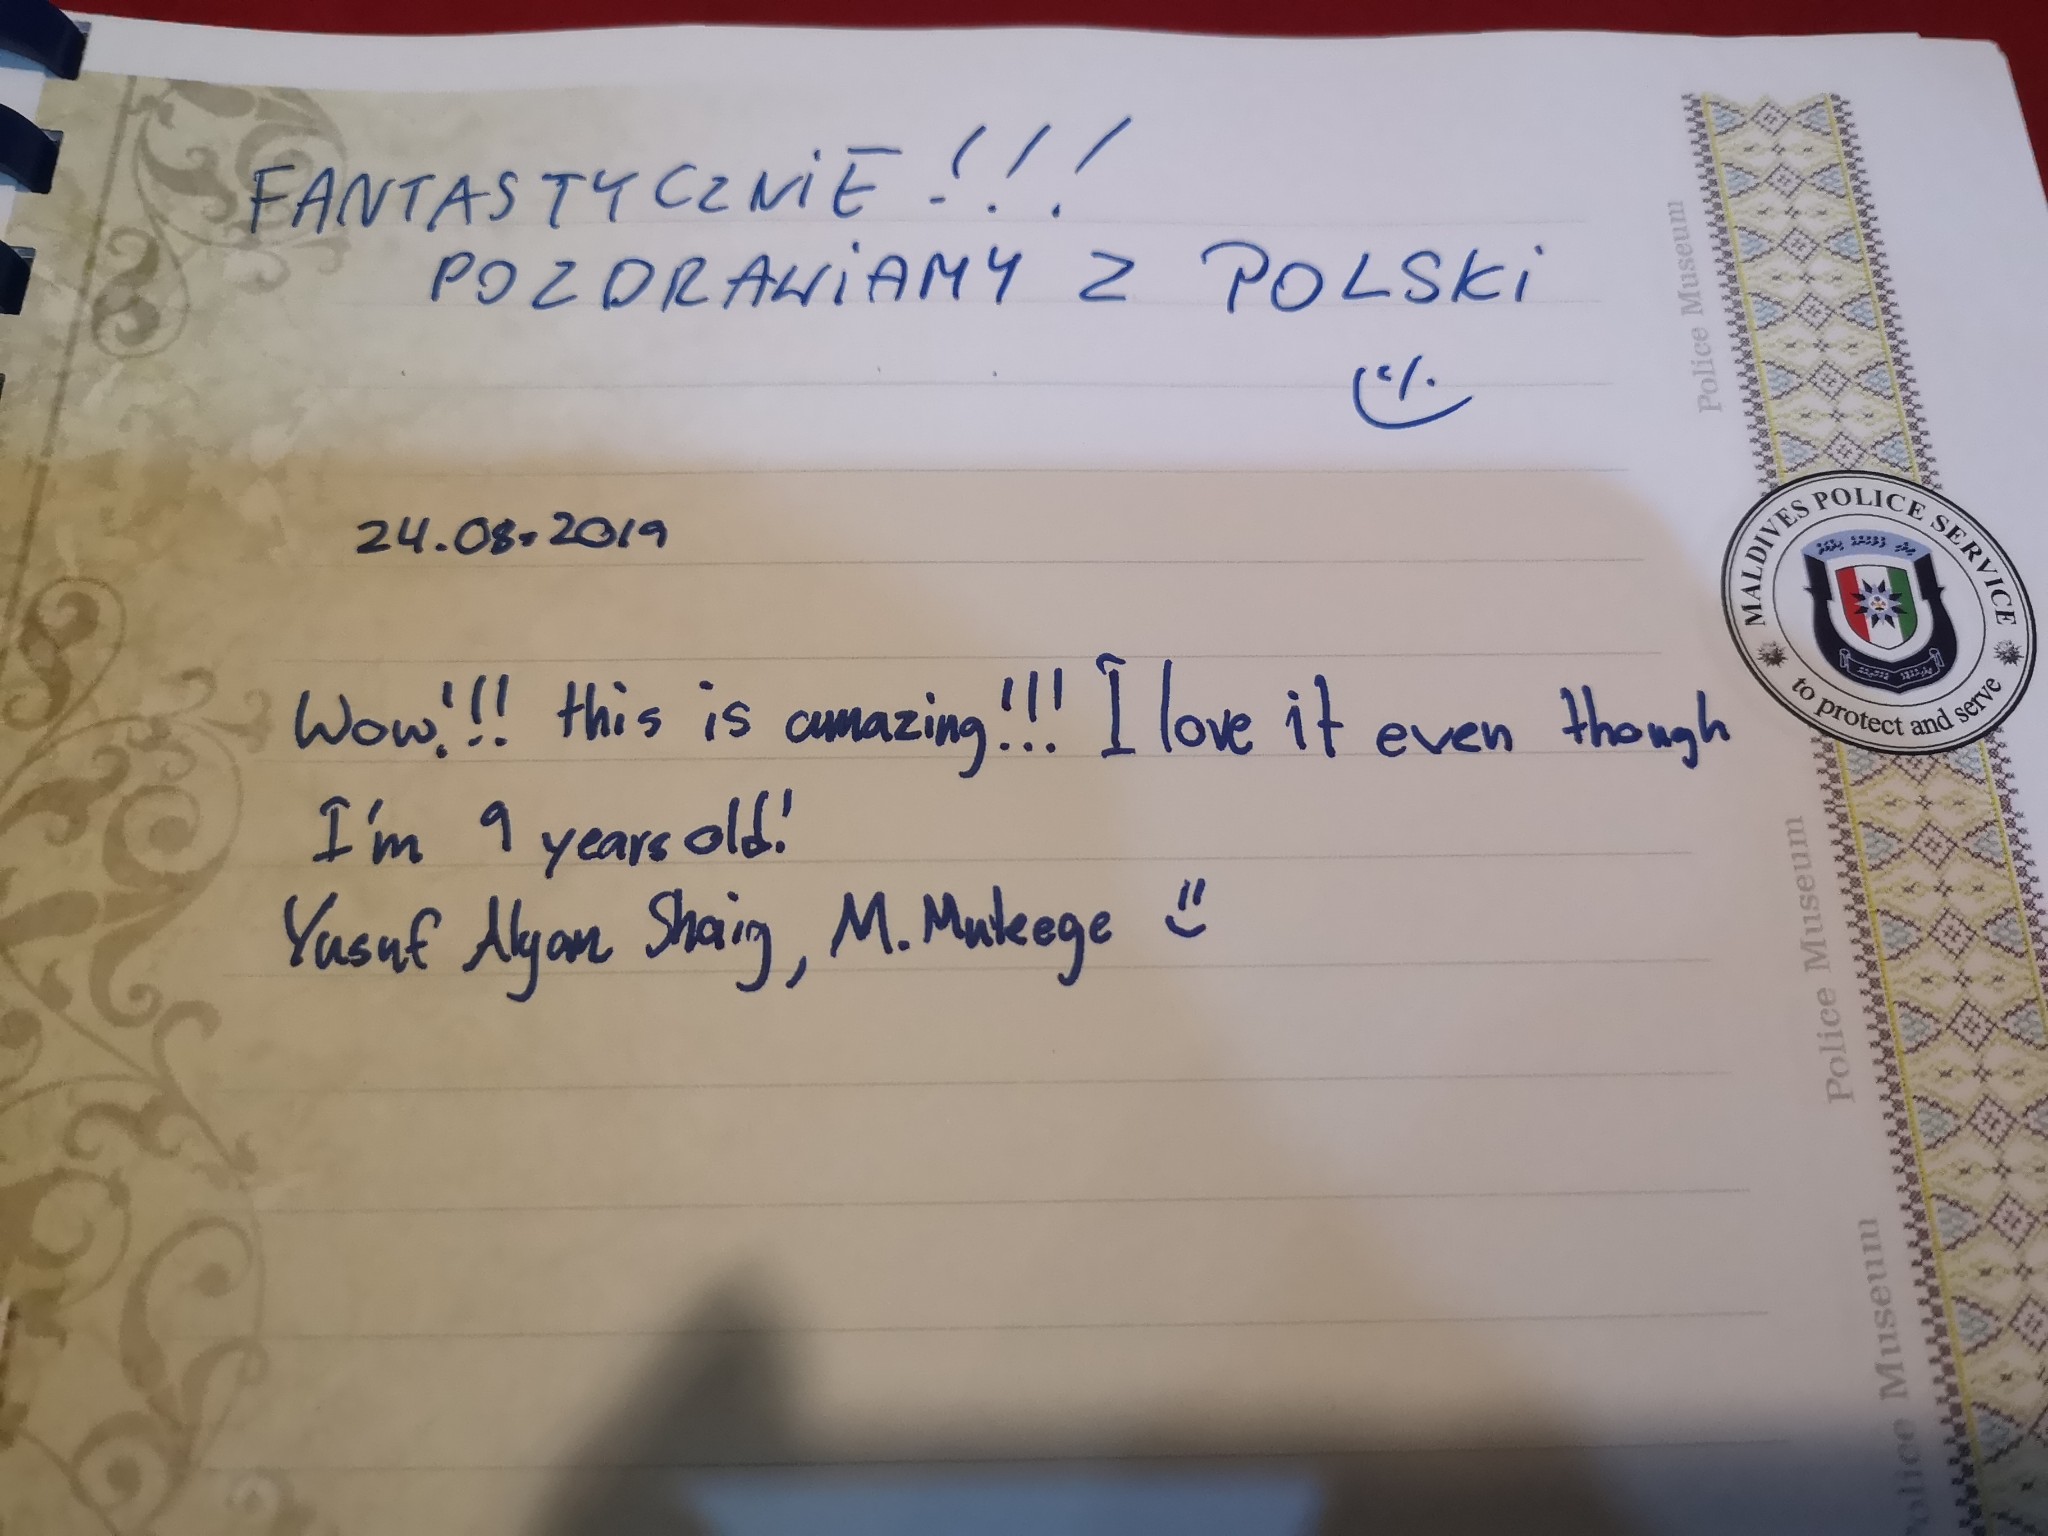 FANTASTYCZNIE !!!
POZDRAWIAMY Z POLSKI
24.08.2019
Wow!!! this is amazing!!! I love it even though
I'm 9 years old!
Yusuf Alyan Shaig, M. Muteege
Police Museum
MALDIVES POLICE SERVICE
to protect and serve
Police Museum
Police Museum